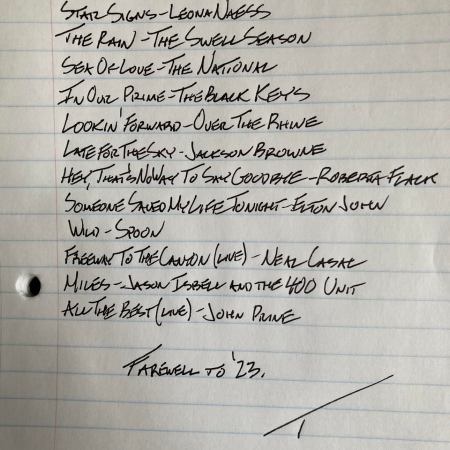 STAR SIGNS - LEONA NAESS
THE RAIN - THE SWELL SEASON
SEA OF LOVE - THE NATIONAL
IN OUR PRIME - THE BLACK KEYS
LOOKIN' FORWARD - OVER THE RHINE
LATE FOR THE SKY - JACKSON BROWNE
HEY, THAT'S NO WAY TO SAY GOODBYE - ROBERTA FLACK
SOMEONE SAVED MY LIFE TONIGHT - ELTON JOHN
WILD - SPOON
FREEWAY TO THE CANYON (LIVE) - NEAL CASAL
MILES - JASON ISBELL AND THE 400 UNIT
ALL THE BEST (LIVE) - JOHN PRINE
FAREWELL TO '23.